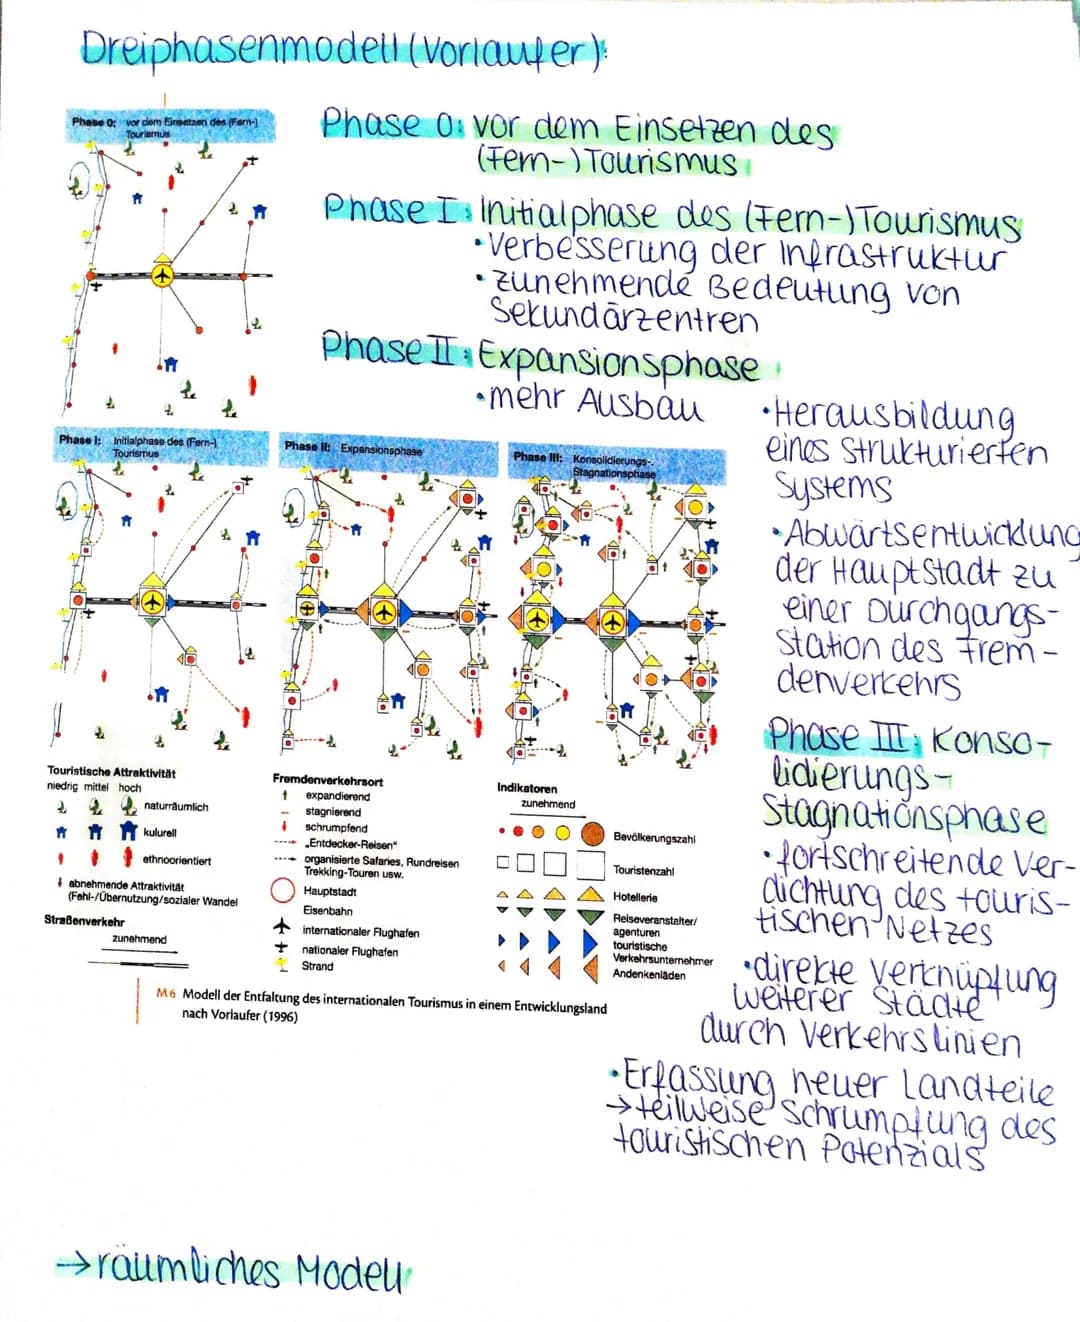 Dreiphasenmodell (Vorlaufer):
Phase 0: vor dem Einsetzen des (Fern-)
Tourismus
Phase 0: vor dem Einsetzen des
(Fern-) Tourismus
Phase I: Initialphase des (Fern-) Tourismus
• Verbesserung der Infrastruktur
• zunehmende Bedeutung von
Sekundärzentren
Phase II: Expansionsphase
• mehr Ausbau
• Herausbildung
eines strukturierten
Systems
• Abwärtsentwicklung
der Hauptstadt zu
einer Durchgangs-
station des Frem-
denverkehrs
Phase I: Initialphase des (Fern-)
Tourismus
Phase II: Expansionsphase
Phase III: Konsolidierungs-,
Stagnationsphase
Phase III: Konso-
lidierungs-
Stagnationsphase
• fortschreitende Ver-
dichtung des touris-
tischen Netzes
• direkte Verknüpfung
weiterer Städte
durch Verkehrslinien
• Erfassung neuer Landteile
→ teilweise Schrumpfung des
touristischen Potenzials
Touristische Attraktivität
niedrig mittel hoch
naturräumlich
kulurell
ethnoorientiert
abnehmende Attraktivität
(Fehl-/Übernutzung/sozialer Wandel
Straßenverkehr
zunehmend
Fremdenverkehrsort
expandierend
stagnierend
schrumpfend
„Entdecker-Reisen"
organisierte Safaries, Rundreisen
Trekking-Touren usw.
Hauptstadt
Eisenbahn
internationaler Flughafen
nationaler Flughafen
Strand
Indikatoren
zunehmend
Bevölkerungszahl
Touristenzahl
Hotellerie
Reiseveranstalter/
agenturen
touristische
Verkehrsunternehmer
Andenkenläden
M6 Modell der Entfaltung des internationalen Tourismus in einem Entwicklungsland
nach Vorlaufer (1996)
→ räumliches Modell